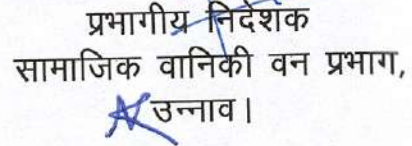 प्रभागीय निदेशक
सामाजिक वानिकी वन प्रभाग,
उन्नाव।